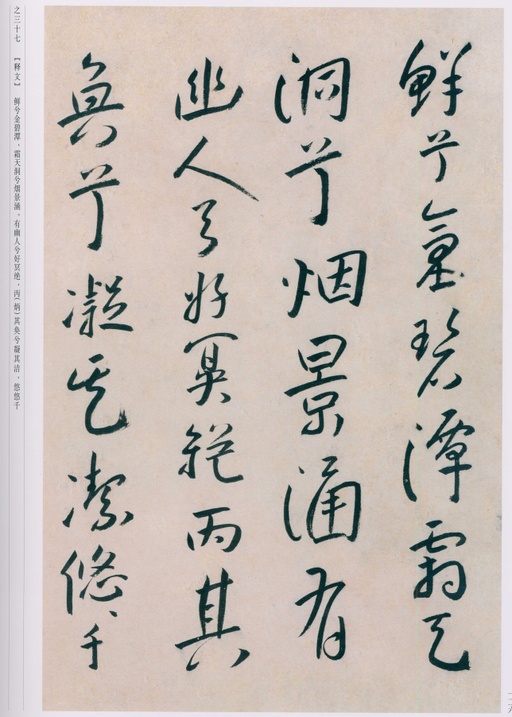 鮮兮金碧潭霜天
洞兮烟景涵有
幽人兮好冥絶丙其
奐兮凝其潔悠〻千
之三十七 【释文】 鲜兮金碧潭、霜天洞兮烟景涵、有幽人兮好冥绝、丙(炳)其奂兮凝其洁、悠悠千